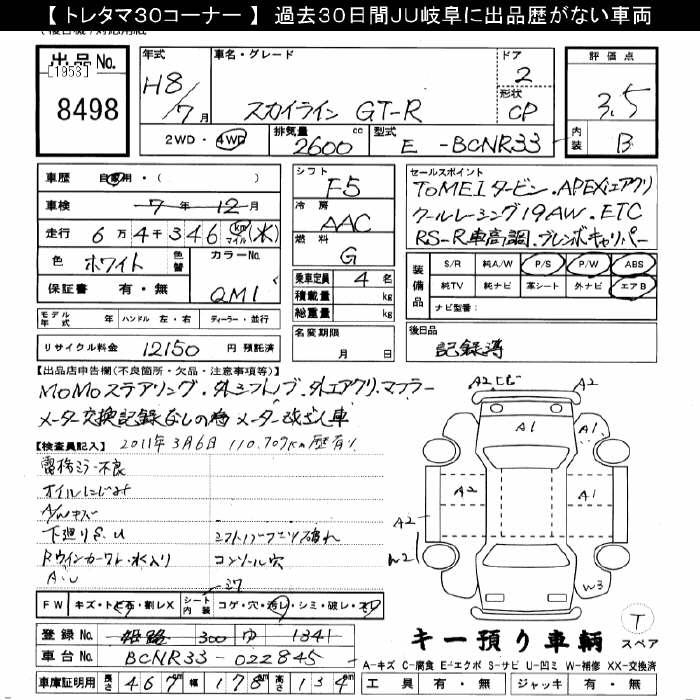 【 トレタマ30コーナー 】 過去30日間JU岐阜に出品歴がない車両
出品 No.
[1953]
8498
年式
H8/7 月
車名・グレード
スカイライン GT-R
ドア
2
形状
CP
評価点
3.5
内装
B
2WD・4WD
排気量
2600 cc
型式
E -BCNR33
車歴 自家用・( )
車検 7 年 12 月
走行 6 万 4 千 3 4 6 km マイル (木)
色 ホワイト 色替
カラーNo.
QM1
保証書 有・無
シフト
F5
冷房
AAC
燃料
G
乗車定員 4 名
積載量 kg
総重量 kg
セールスポイント
TOMEIタービン.APEXiエアクリ
クールレーシング19AW.ETC
RS-R車高調.ブレンボキャリパー
装備品
S/R 純A/W P/S P/W ABS
純TV 純ナビ 革シート 外ナビ エアB
ナビ型番:
モデル年式 年 ハンドル 左・右 ディーラー・並行
リサイクル料金 12150 円 預託済
名変期限
月 日
後日品
記録簿
【出品店申告欄(不良箇所・欠品・注意事項等)】
MOMOステアリング.外シフトノブ.外エアクリ.マフラー
メーター交換記録なしの為メーター改ざん車
【検査員記入】 2011年3月6日 110.707km歴有り
電格ミラー不良
オイルにじみ
A/Wキズ
下廻りS.U シフトノブブーツ破れ
Rウインカーワレ・水入り コンソール穴
A.U
A2
A2
A1
A1
A2
A1
A2
W2
W3
FW キズ・トビ石・割レX シート内装 コゲ・穴・汚レ・シミ・破レ・スレ
登録 No. 姫路 300 ゆ 1341
車台 No. BCNR33-022845
車庫証明用 長さ 467 cm 幅 178 cm 高さ 134 cm
キー預り車輌
T
スペア
A-キズ C-腐食 E-エクボ S-サビ U-凹ミ W-補修 XX-交換済
工具 有・無 ジャッキ 有・無